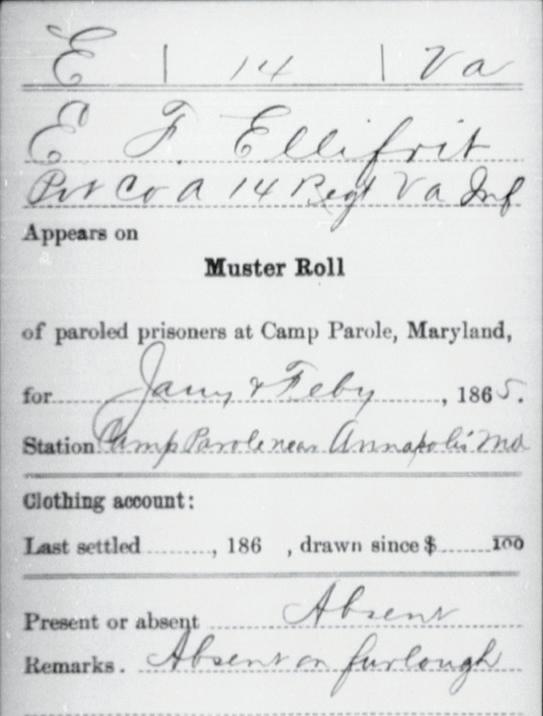 E | 14 | Va
E F. Ellifrit
Pvt Co A 14 Regt Va Inf
Appears on
Muster Roll
of paroled prisoners at Camp Parole, Maryland,
for Jany & Feby, 1865.
Station Camp Parole near Annapolis Md
Clothing account:
Last settled ........, 186 , drawn since $ ........ 100
Present or absent Absent
Remarks. Absent on furlough